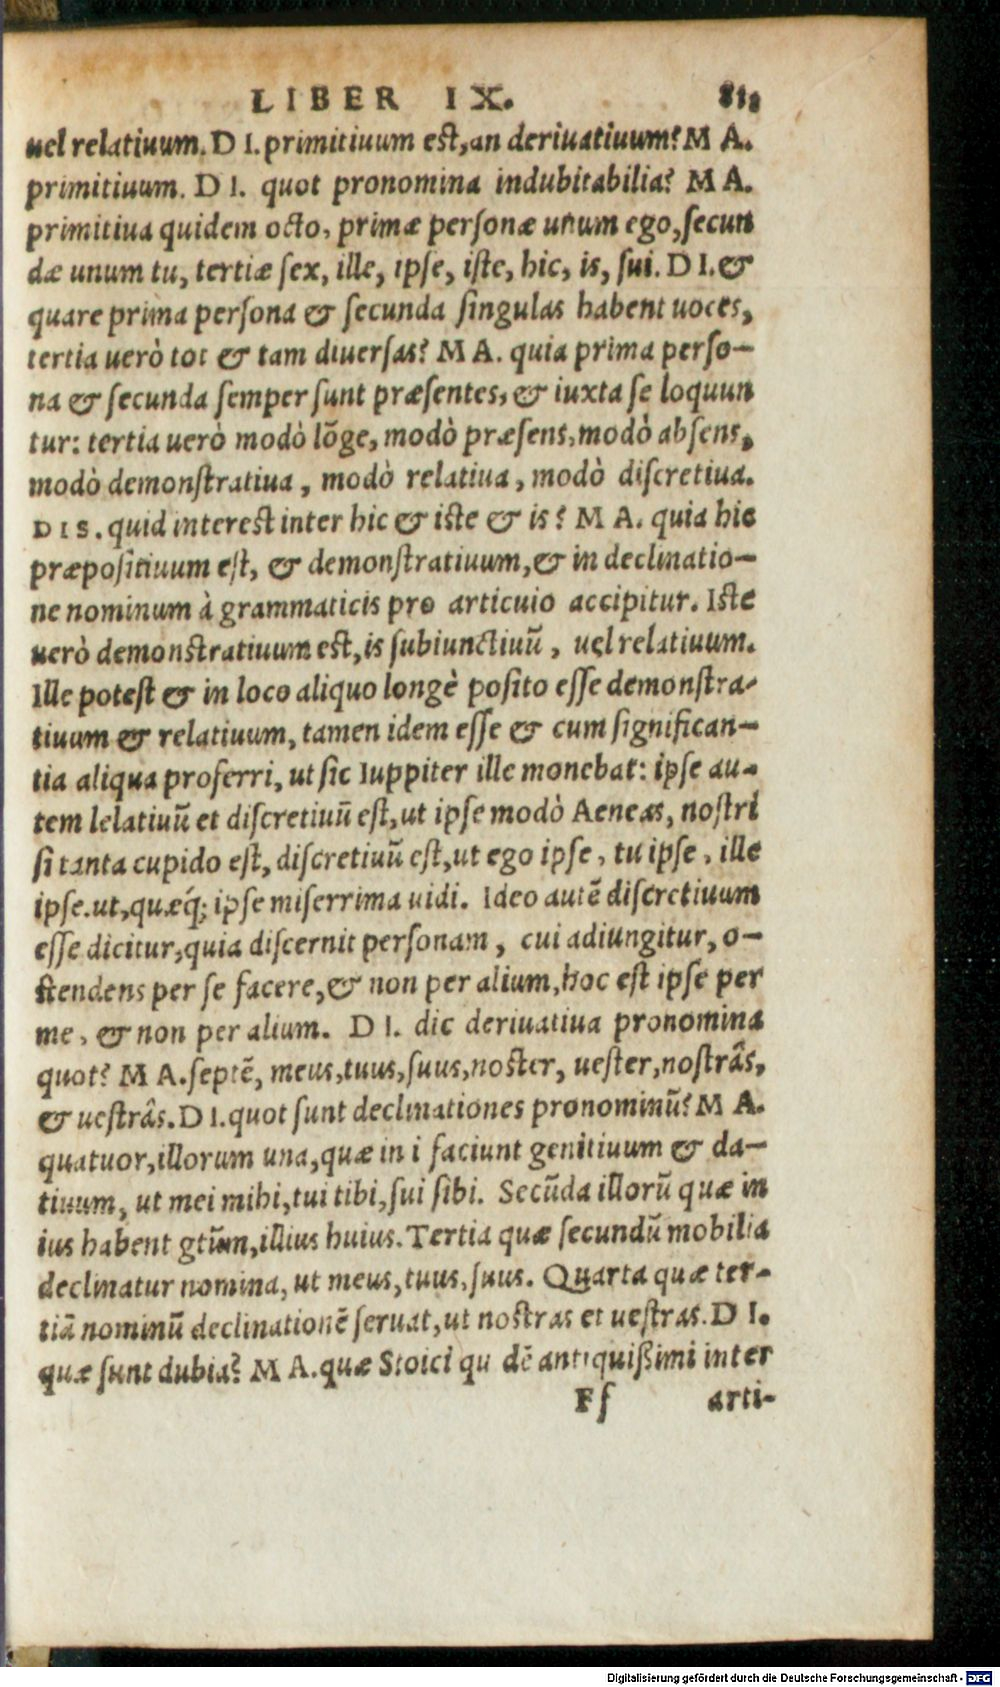 LIBER IX.
uel relatiuum. D I. primitiuum est, an deriuatiuum? M A.
primitiuum. D I. quot pronomina indubitabilia? M A.
primitiua quidem octo, primæ personæ unum ego, secun
dæ unum tu, tertiæ sex, ille, ipse, iste, hic, is, sui. D I. &
quare prima persona & secunda singulas habent uoces,
tertia uerò tot & tam diuersas? M A. quia prima perso-
na & secunda semper sunt præsentes, & iuxta se loquun
tur: tertia uerò modò lõge, modò præsens, modò absens,
modò demonstratiua, modò relatiua, modò discretiua.
DIS. quid interest inter hic & iste & is? M A. quia hic
præpositiuum est, & demonstratiuum, & in declinatio-
ne nominum à grammaticis pro articulo accipitur. Iste
uerò demonstratiuum est, is subiunctiuũ, uel relatiuum.
Ille potest & in loco aliquo longè posito esse demonstra-
tiuum & relatiuum, tamen idem esse & cum significan-
tia aliqua proferri, ut sic Iuppiter ille monebat: ipse au-
tem lelatiuũ et discretiuũ est, ut ipse modò Aeneas, nostri
si tanta cupido est, discretiuũ est, ut ego ipse, tu ipse, ille
ipse. ut, quæq́; ipse miserrima uidi. Ideo autẽ discretiuum
esse dicitur, quia discernit personam, cui adiungitur, o-
stendens per se facere, & non per alium, hoc est ipse per
me, & non per alium. D I. dic deriuatiua pronomina
quot? M A. septẽ, meus, tuus, suus, noster, uester, nostrâs,
& uestrâs. D I. quot sunt declinationes pronominũ? M A.
quatuor, illorum una, quæ in i faciunt genitiuum & da-
tiuum, ut mei mihi, tui tibi, sui sibi. Secũda illorũ quæ in
ius habent gtĩum, illius huius. Tertia quæ secundũ mobilia
declinatur nomina, ut meus, tuus, suus. Quarta quæ ter-
tiã nominũ declinationẽ seruat, ut nostras et uestras. D I.
quæ sunt dubia? M A. quæ Stoici qu dẽ antiquißimi inter
Ff arti-
Digitalisierung gefördert durch die Deutsche Forschungsgemeinschaft - DFG